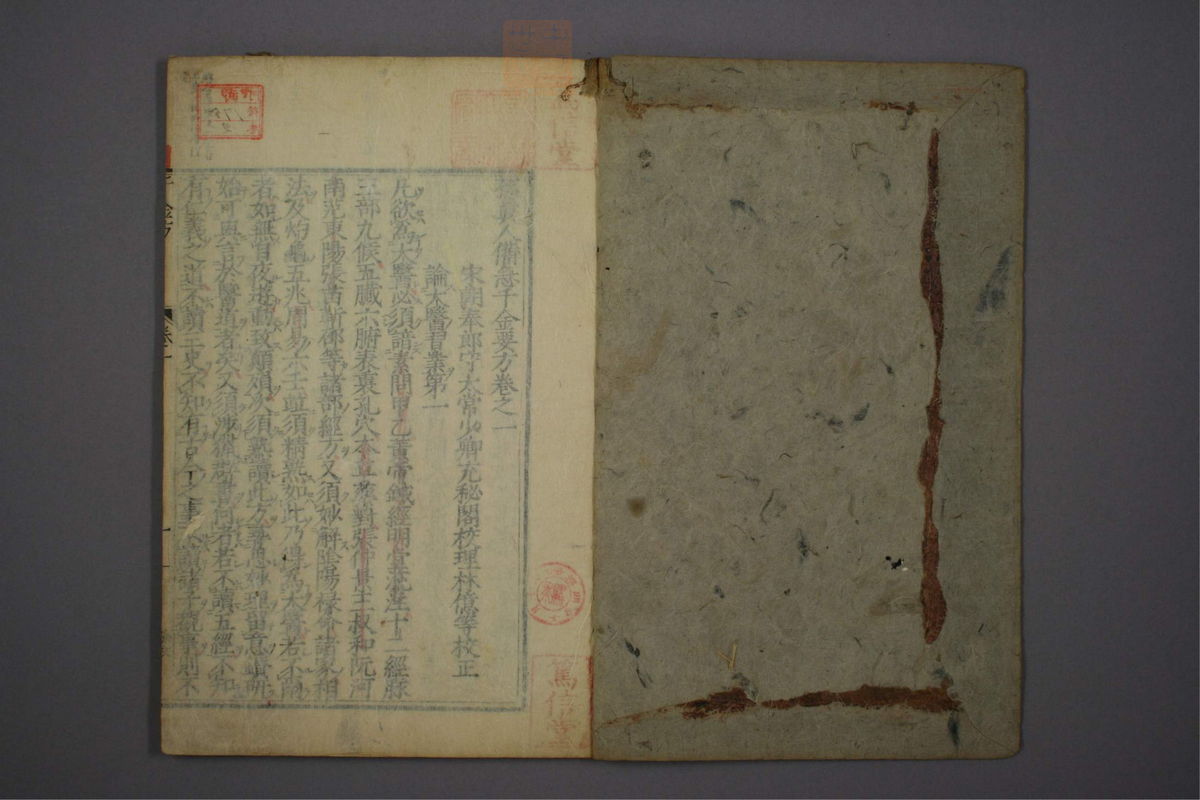 孫真人備急千金要方卷之一
宋朝奉郎守太常少卿充秘閣校理林億等校正
論大醫習業第一
凡欲為大醫必須諳素問甲乙黃帝鍼經明堂流注十二經脉
三部九候五臟六腑表裏孔穴本草藥對張仲景王叔和阮河
南范東陽張苗靳邵等諸部經方又須妙解陰陽祿命諸家相
法及灼龜五兆周易六壬並須精熟如此乃得為大醫若不爾
者如無目夜遊動致顛殞次須熟讀此方尋思妙理留意鑽研
始可與言於醫道者矣又須涉獵群書何者若不讀五經不知
有仁義之道不讀三史不知有古今之事不讀諸子覩事則不
千金方
卷一
篤信堂